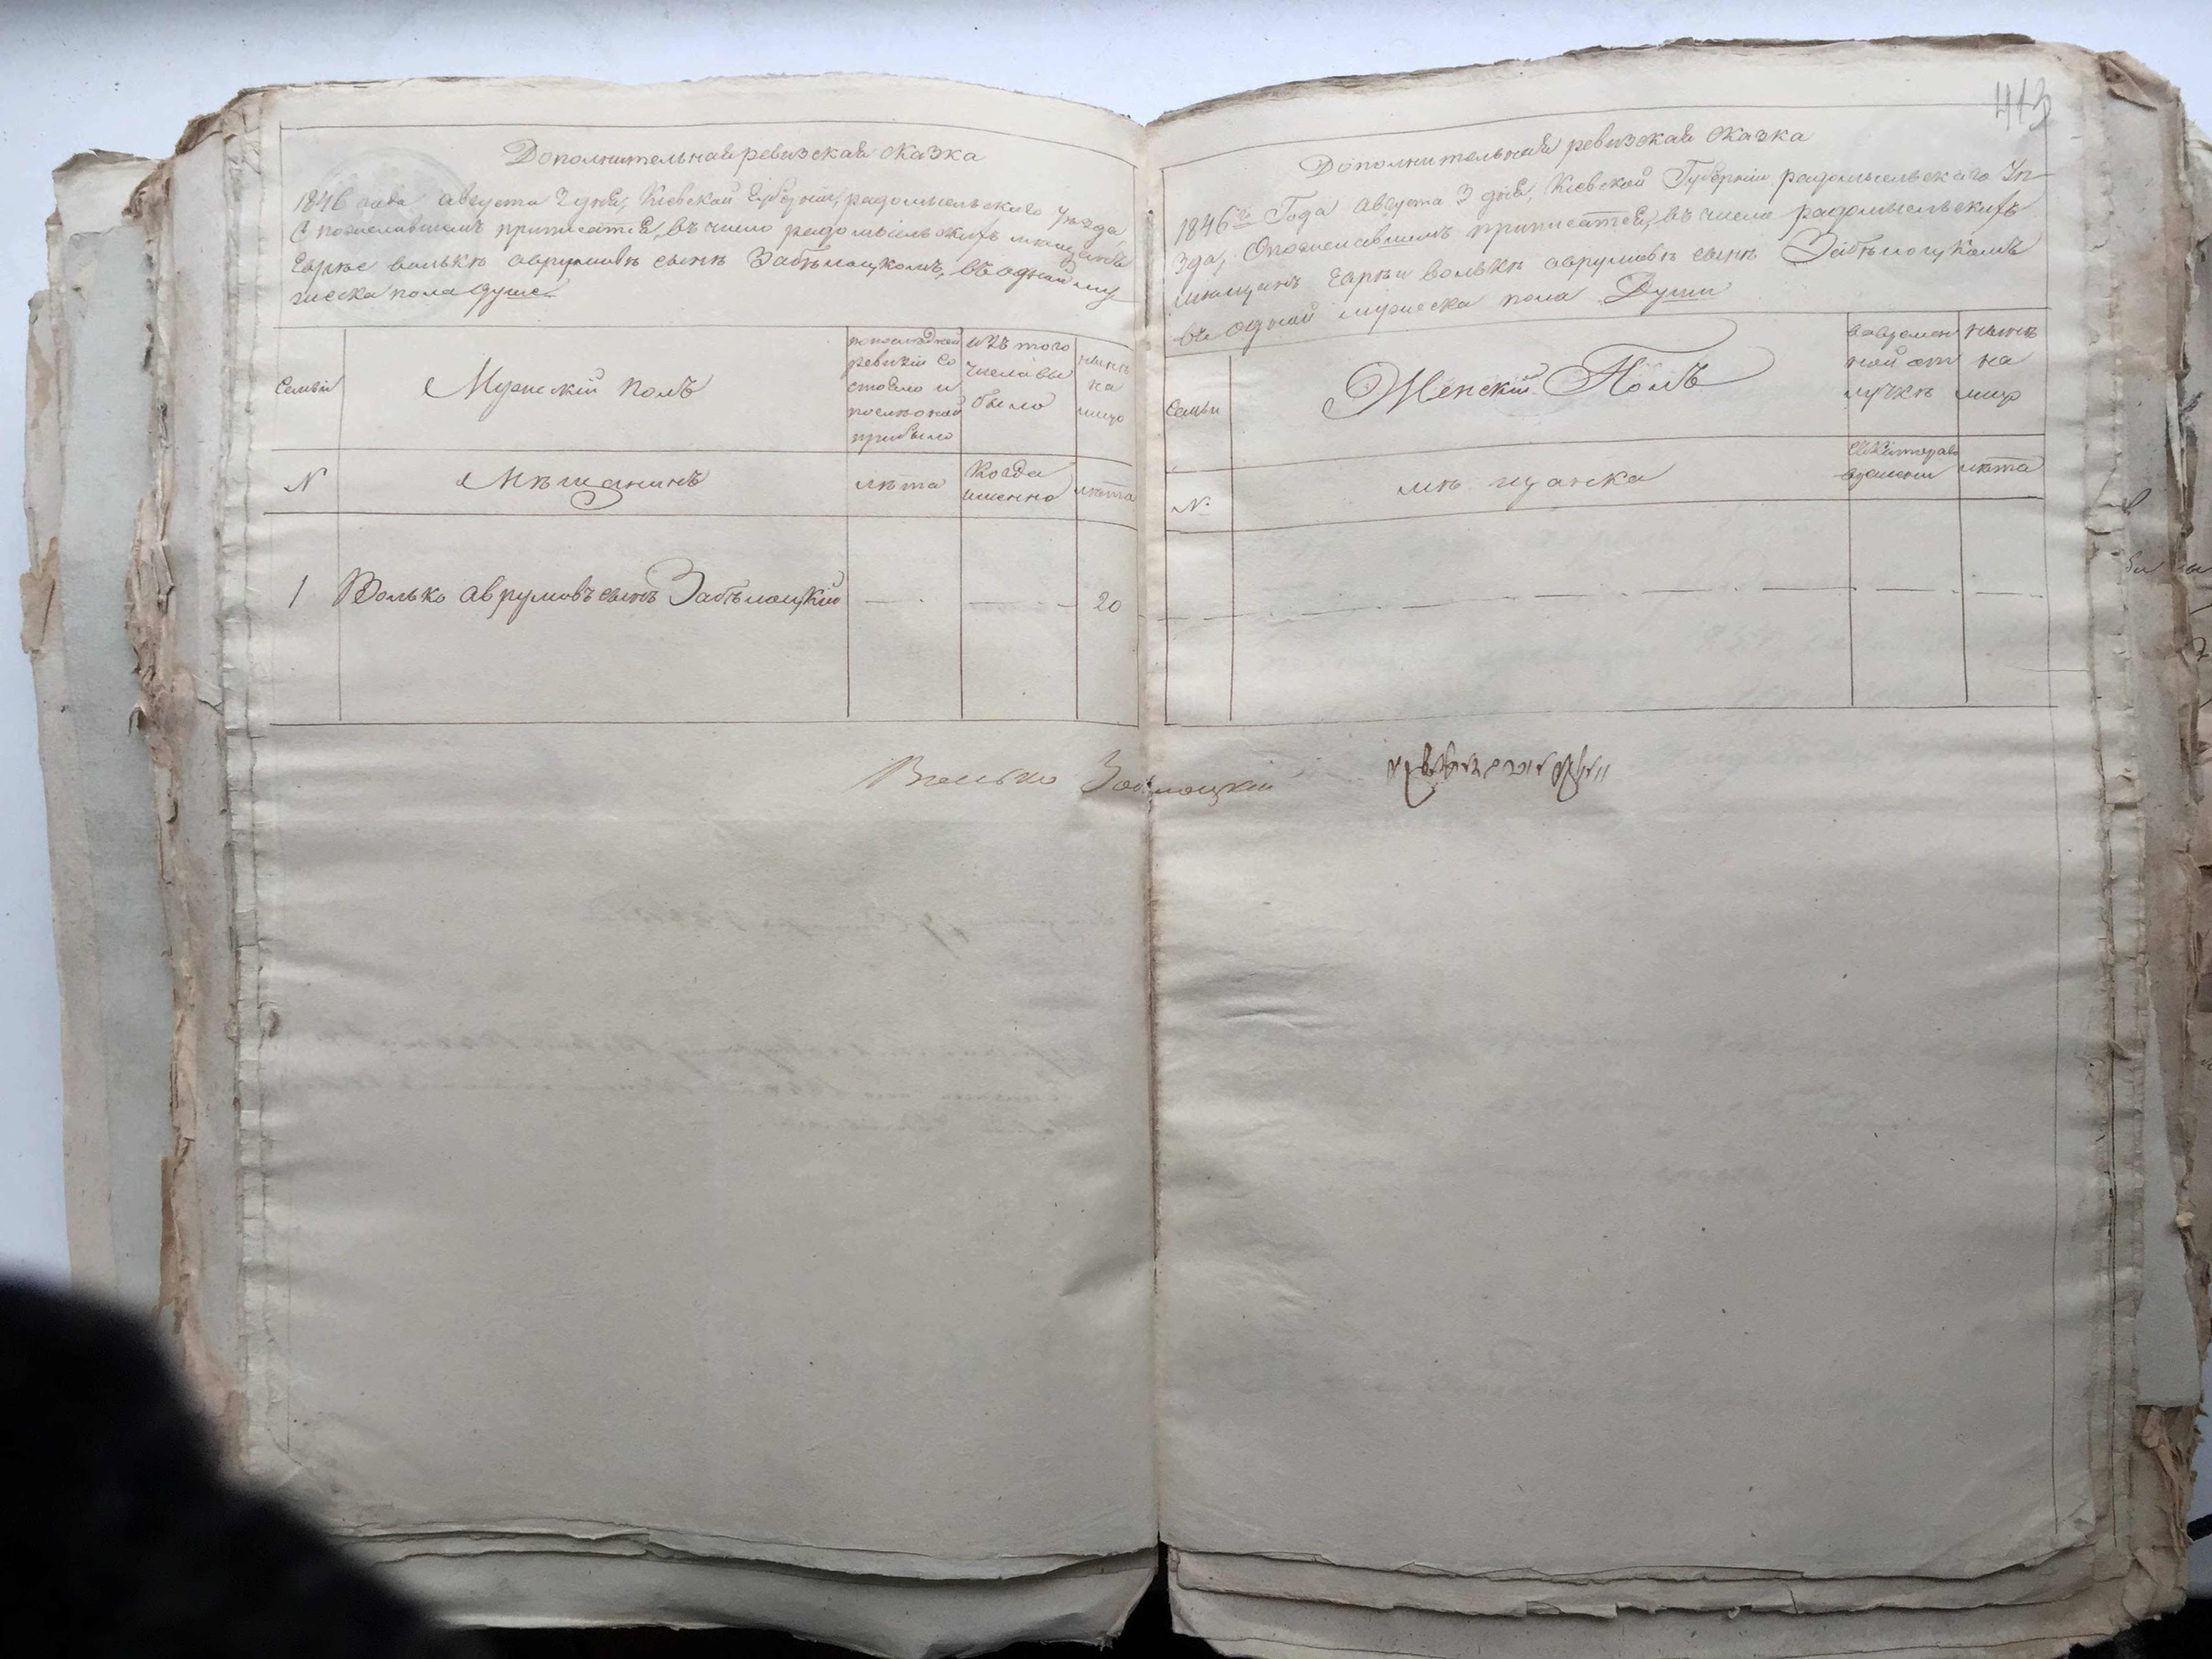 Дополнительная ревизская сказка
1846 года августа 2 дня, Кіевской Губерніи, радомысльского Уезда,
О пожелавшемъ приписатся, въ число радомысльскихъ мещанъ
Еврее вольке аврумове сыне Заблоцкомъ, въ одной му
жеска пола душе
Семьи
Мужскій полъ
по последней
ревизіи со
стояло и
после оной
прибыло
изъ того
числа вы
было
ныне
на
лицо
N
Мещанинъ
лета
Когда
именно
лета
1 Волько аврумовъ сынъ Заблоцкій — — 20
Волько Заблоцкій
413
Дополнительная ревизская сказка
1846го Года августа 3 дня, Кіевской Губерніи радомысльскаго Уе
зда, О пожелавшемъ приписатся, въ число радомысльскихъ
мещанъ Еврее вольке аврумове сыне Заблоцкомъ
въ одной мужеска пола Души
Семьи
Женскій Полъ
во времен
ной от
лучке
ныне
на
лицо
N.
мещанка
съ котораго
времени
лета